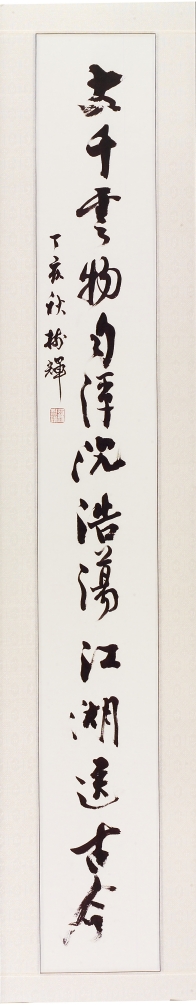 大千雲物自渾沉浩蕩江湖送古今
丁亥秋樹輝